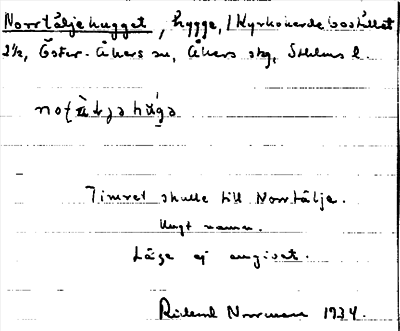 Norrtäljehugget, hygge, / Kyrkoherdebostället
2½, Öster-Åkers sn, Åkers skg, Sthlms l.
Timret skulle till Norrtälje.
Ungt namn.
Läge ej angivet.
Rickard Norrman 1934.